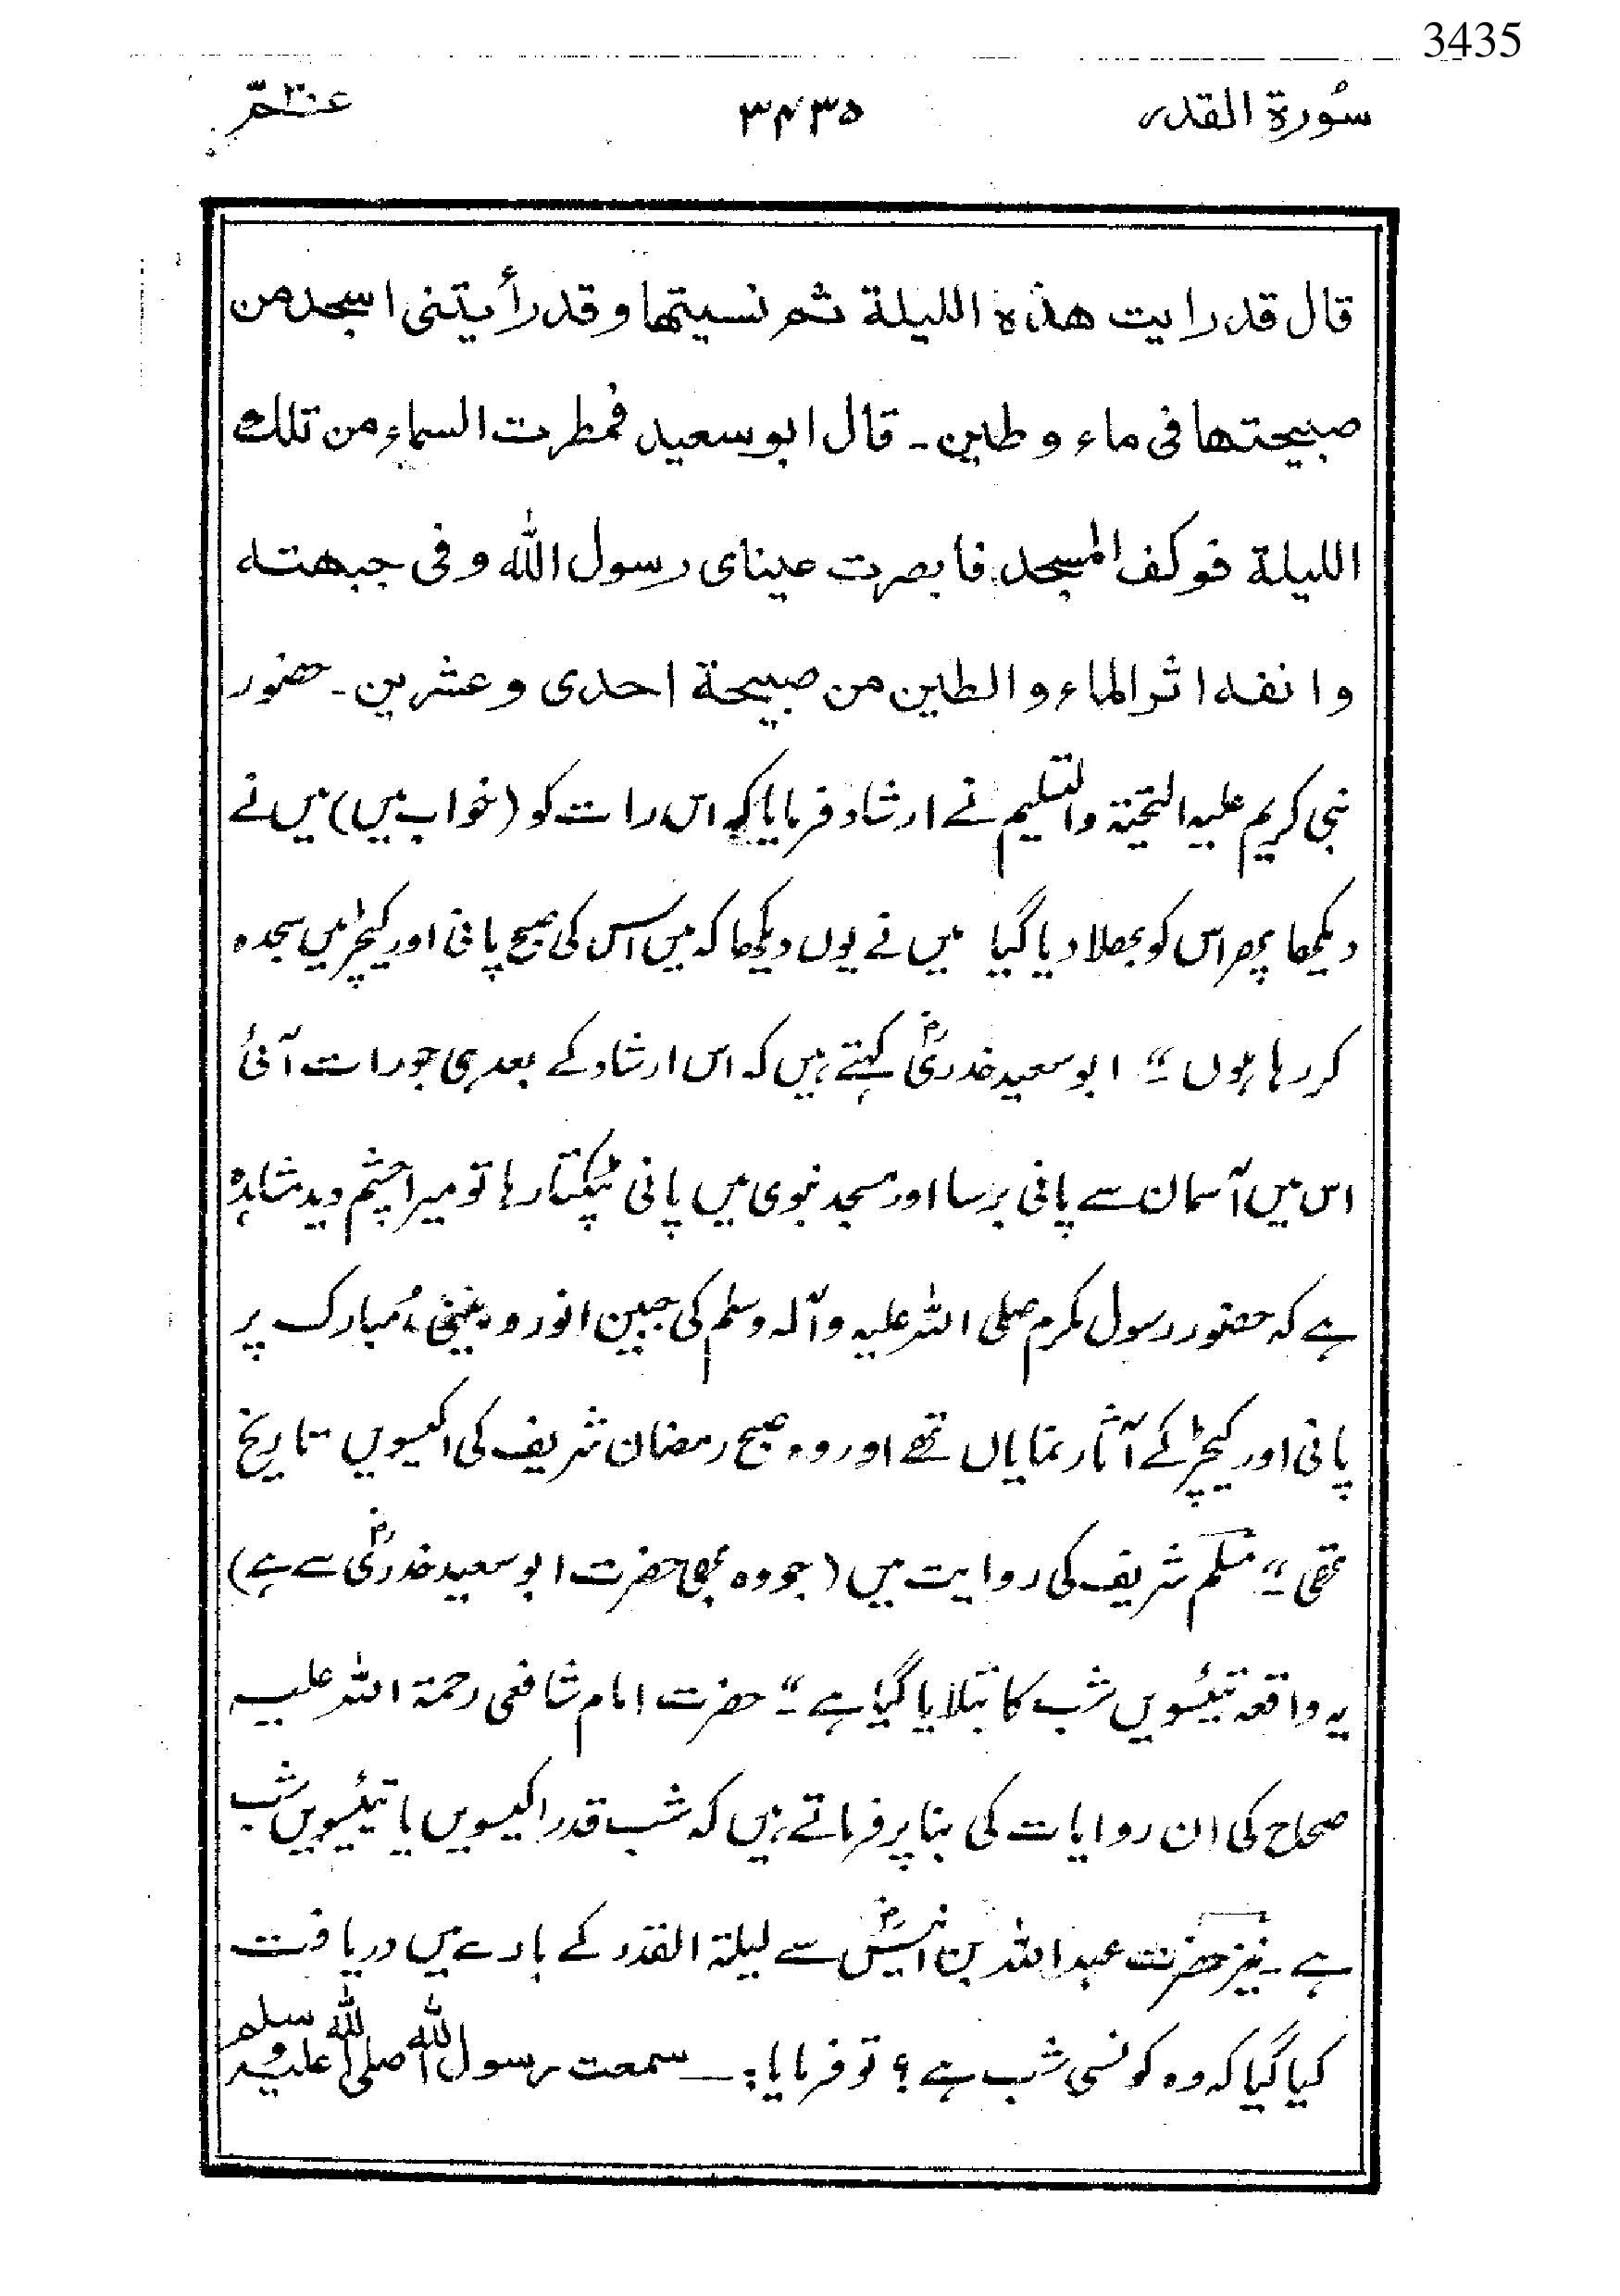 3435
سُورۃ القدر ۳۴۳۵ عــمّ ۳۰
قال قد رایت ھذہ اللیلۃ ثم نسیتھا و قد رأیتنی اسجد من
صبیحتھا فی ماء و طین۔ قال ابو سعید فمطرت السماء من تلک
اللیلۃ فوکف المسجد فابصرت عینای رسول اللہ و فی جبھتہ
وانفہ اثر الماء و الطین من صبیحۃ احدی و عشرین۔ حضور
نبی کریم علیہ التحیۃ والتسلیم نے ارشاد فرمایا کہ اس رات کو (خواب میں) میں نے
دیکھا پھر اس کو بھلا دیا گیا میں نے یوں دیکھا کہ میں اس کی صبح پانی اور کیچڑ میں سجدہ
کر رہا ہوں ‟۔ ابو سعید خدریؓ کہتے ہیں کہ اس ارشاد کے بعد ہی جو رات آئی
اس میں آسمان سے پانی برسا اور مسجد نبوی میں پانی ٹپکتا رہا تو میرا چشم دید مشاہدہ
ہے کہ حضور رسول مکرم صلی اللہ علیہ وآلہ وسلم کی جبین انور و بینیٔ مُبارک پر
پانی اور کیچڑ کے آثار نمایاں تھے اور وہ صبح رمضان شریف کی اکیسویں تاریخ
تھی ‟۔ مسلم شریف کی روایت میں (جو وہ بھی حضرت ابو سعید خدریؓ سے ہے)
یہ واقعہ تیئسویں شب کا بتلایا گیا ہے ‟۔ حضرت امام شافعی رحمۃ اللہ علیہ
صحاح کی ان روایات کی بنا پر فرماتے ہیں کہ شب قدر اکیسویں یا تیئسویں شب
ہے۔ نیز حضرت عبد اللہ بن انیسؓ سے لیلۃ القدر کے بارے میں دریافت
کیا گیا کہ وہ کونسی شب ہے؟ تو فرمایا:۔ سمعت رسول اللہ صلی اللہ علیہ و سلم